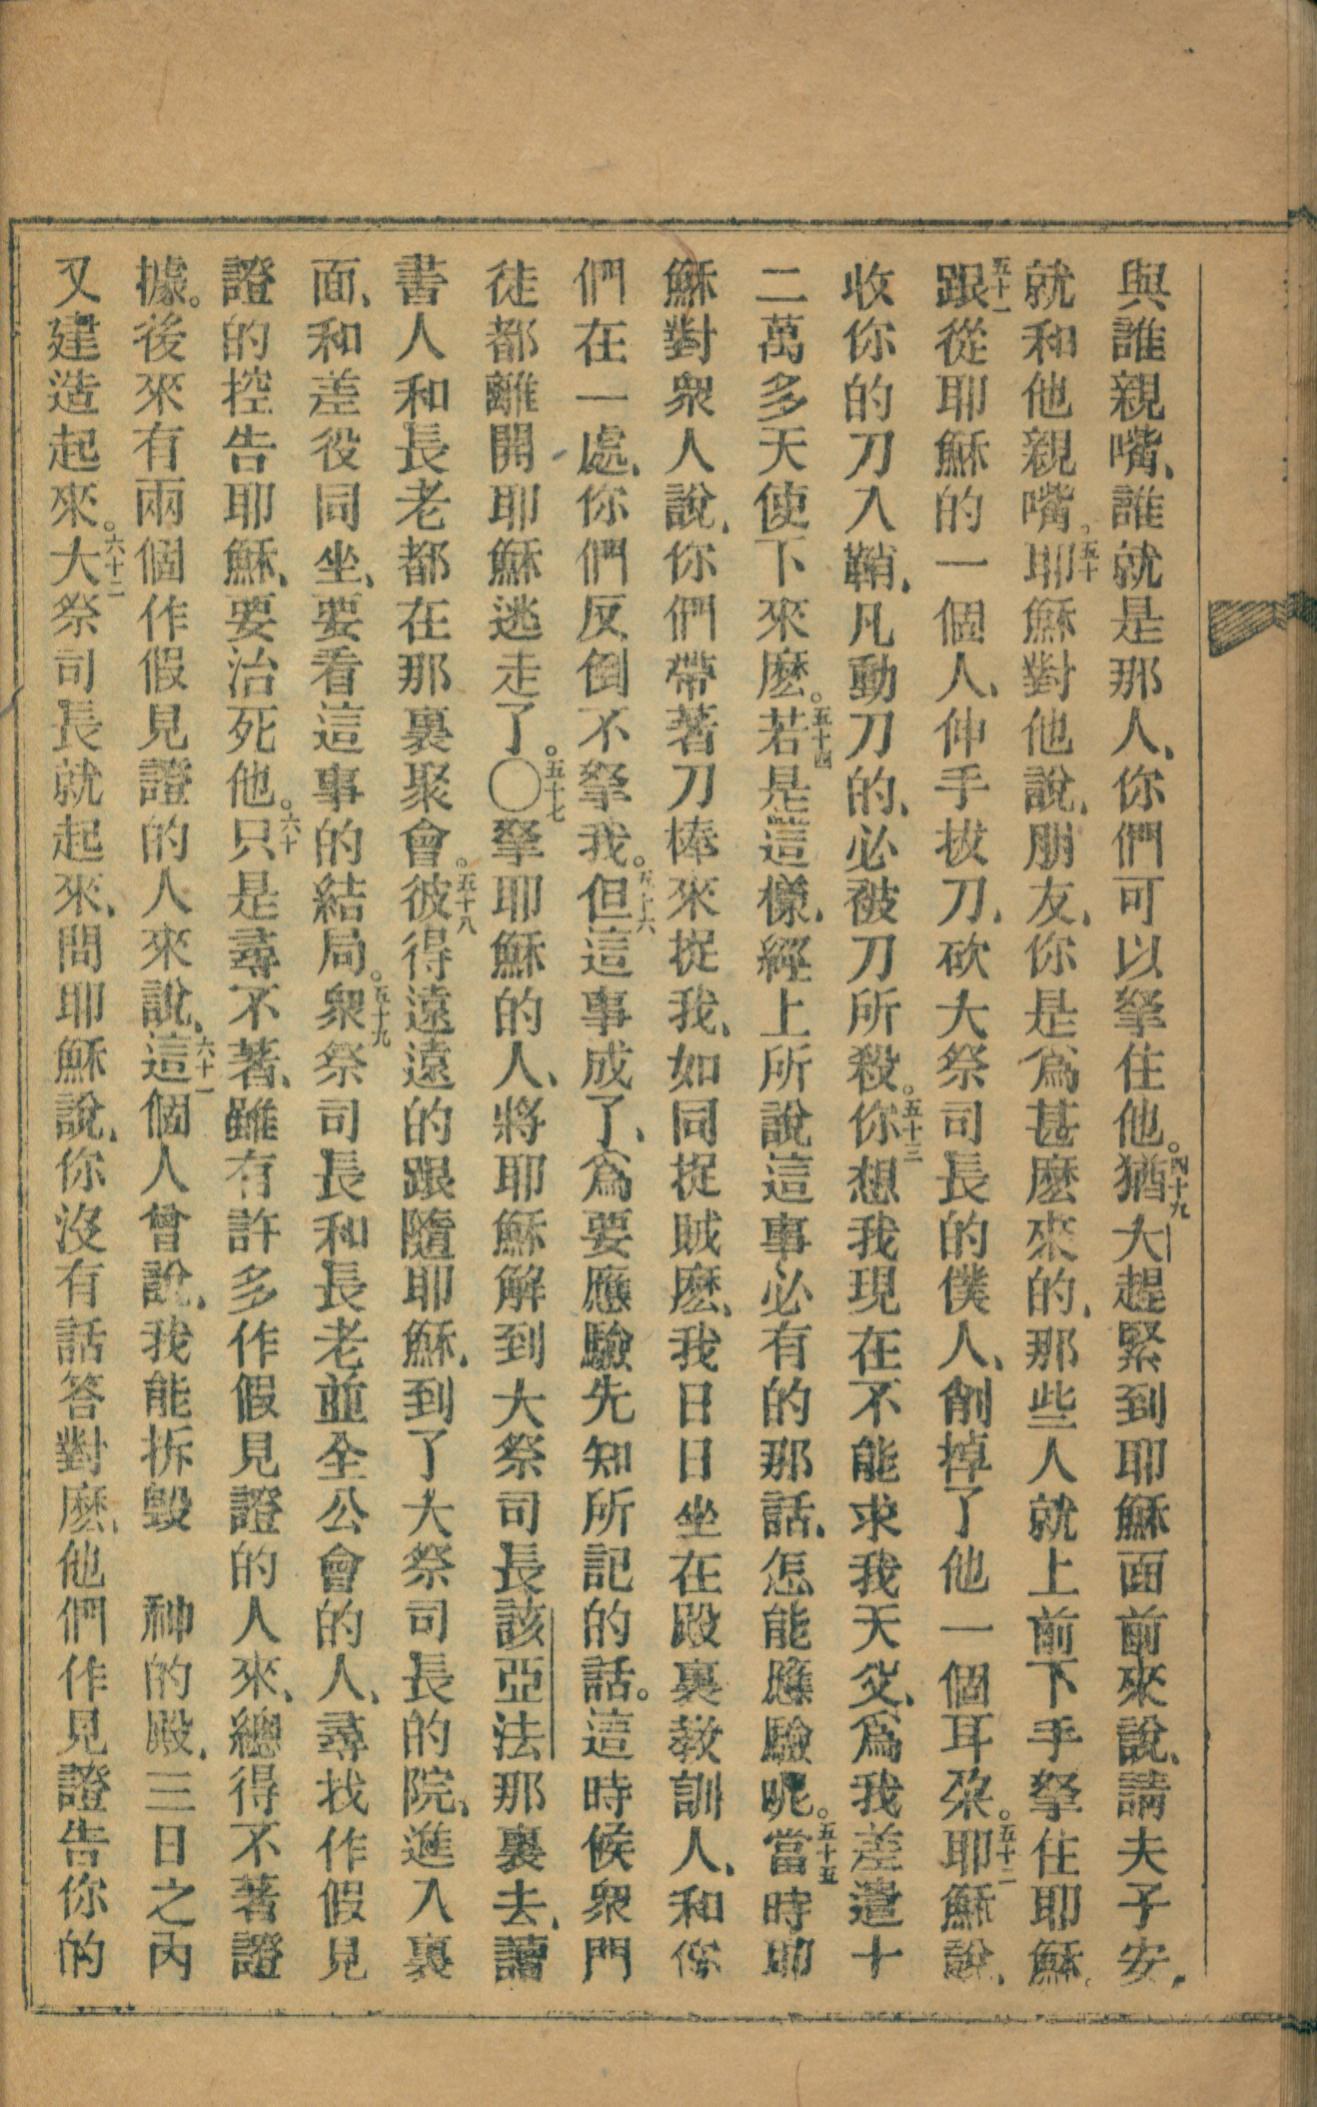 與誰親嘴、誰就是那人、你們可以拏住他。四十九猶大趕緊到耶穌面前來說、請夫子安、
就和他親嘴。五十耶穌對他說、朋友、你是爲甚麽來的、那些人就上前下手拏住耶穌。
五十一跟從耶穌的一個人、伸手拔刀、砍大祭司長的僕人、削掉了他一個耳朶。五十二耶穌說、
收你的刀入鞘、凡動刀的、必被刀所殺。五十三你想我現在不能求我天父、爲我差遣十
二萬多天使下來麽。五十四若是這樣、經上所說這事必有的那話、怎能應驗呢。五十五當時耶
穌對衆人說、你們帶著刀棒來捉我、如同捉賊麽、我日日坐在殿裏教訓人、和你
們在一處、你們反倒不拏我。五十六但這事成了、爲要應驗先知所記的話。這時候衆門
徒都離開耶穌逃走了。〇五十七拏耶穌的人、將耶穌解到大祭司長該亞法那裏去、讀
書人和長老都在那裏聚會。五十八彼得遠遠的跟隨耶穌、到了大祭司長的院、進入裏
面、和差役同坐、要看這事的結局。五十九衆祭司長和長老並全公會的人、尋找作假見
證的控告耶穌、要治死他。六十只是尋不著、雖有許多作假見證的人來、總得不著證
據。後來有兩個作假見證的人來說、六十一這個人曾說、我能拆毀　神的殿、三日之內
又建造起來。六十二大祭司長就起來、問耶穌說、你沒有話答對麽、他們作見證告你的